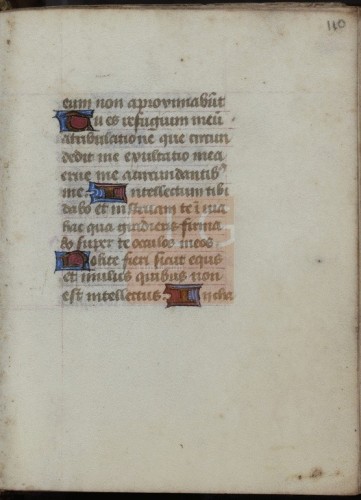 110
eum non aproximabũt
Tu es refugium meũ
atribulatione que circun
dedit me exultatio mea
erue me acircundantibꝰ
me Intellectum tibi
dabo et instruam te ĩ uia
hac qua gradieris firma
bo super te occulos meos
Nolite fieri sicut equs
et mulus quibus non
est intellectus In cha